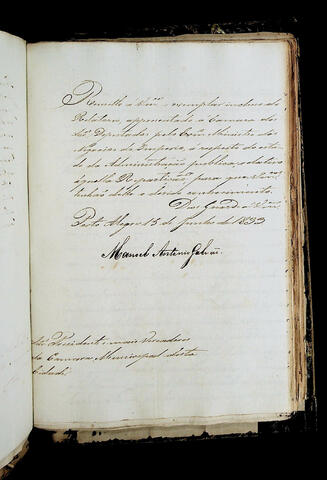 Remetto a Vm.ces o exemplar incluso do
Relatorio appresentado á Camara dos
Srs. Deputados, pelo Exmo. Ministro dos
Negocios do Imperio, á respeito do esta-
do da Administração publica relativa
áquella Repartição, para que Vm.ces
tenhão delle o devido conhecimento.
Deos Guarde a Vm.ces
Porto Alegre 15 de Junho de 1833
Manoel Antonio Galvão.
Srs. Presidente, e mais Vereadores
da Camara Municipal desta
Cidade